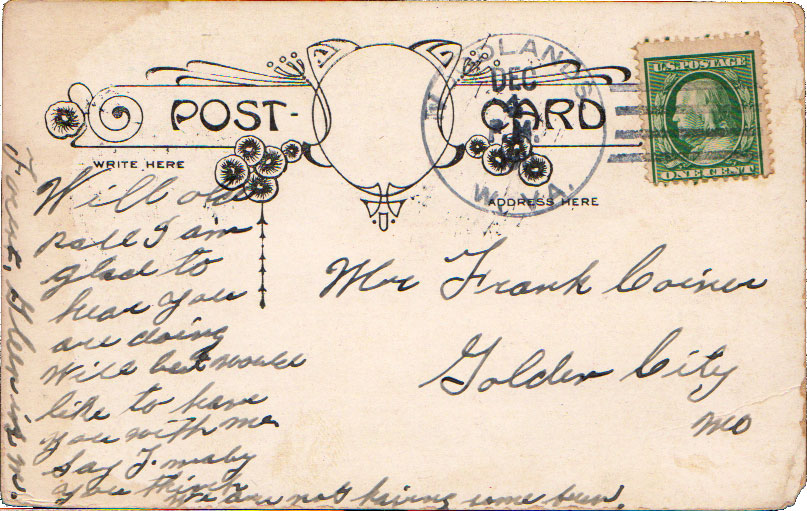 POST-CARD
WRITE HERE
ADDRESS HERE
W. VA.
DEC
4
U.S. POSTAGE
ONE CENT
Will old
pall I am
glad to
hear you
are doing
Will but would
like to have
you with me
Say F. maby
you think
We are not having some fun.
Mr Frank Coiner
Golden City
Mo